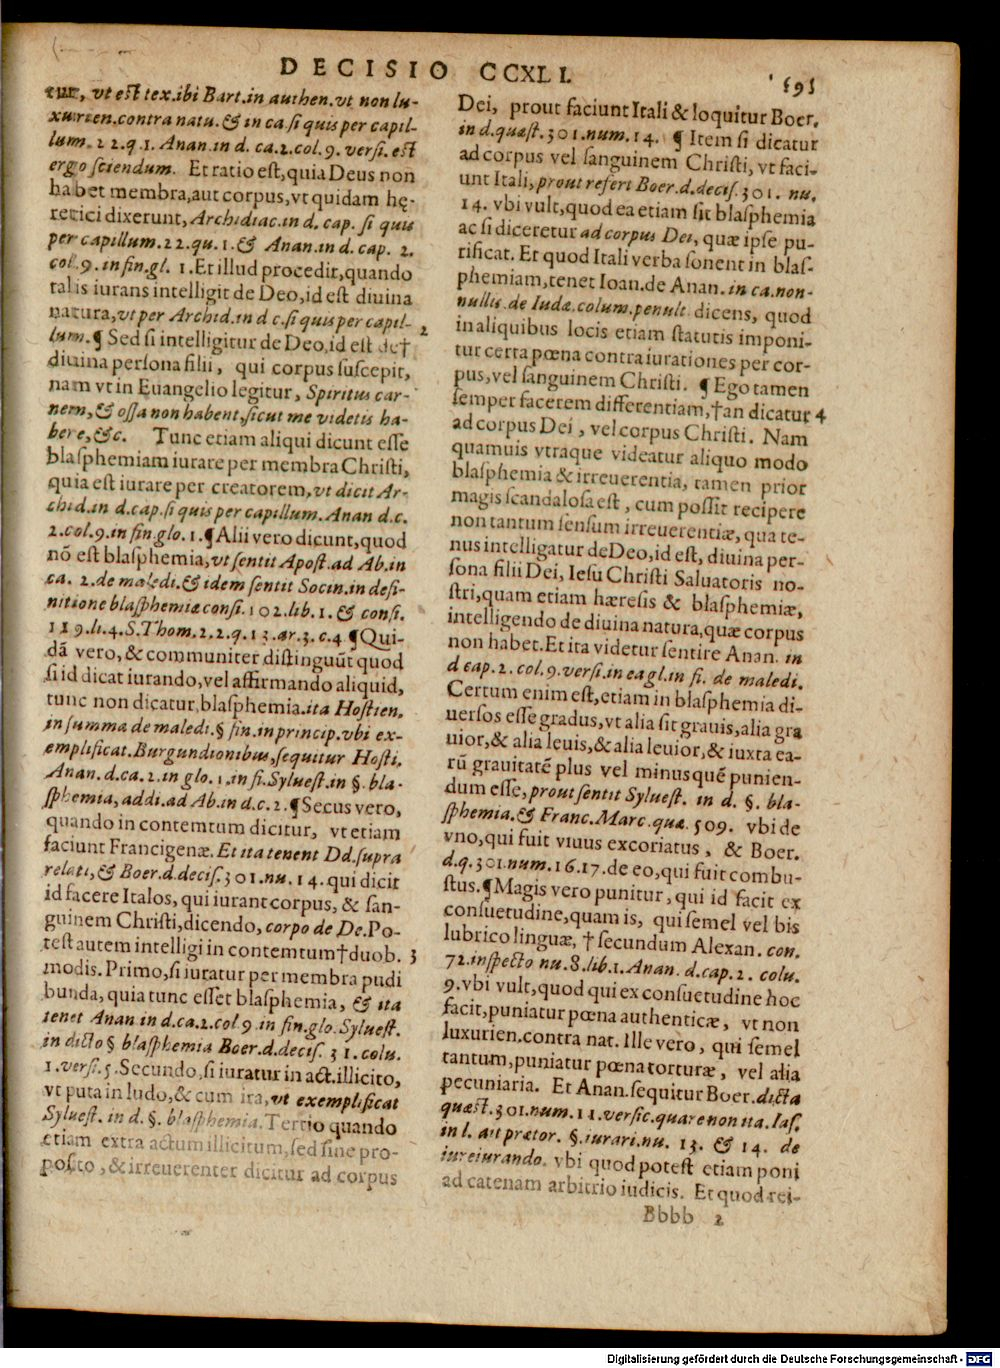 DECISIO CCXLI.
595
tur, vt est tex. ibi Bart. in authen. vt non lu-
xurien. contra natu. & in ca. si quis per capil-
lum. 22. q. 1. Anan. in d. ca. 2. col. 9. versi. est
ergo sciendum. Et ratio est, quia Deus non
habet membra, aut corpus, vt quidam hę-
retici dixerunt, Archidiac. in d. cap. si quis
per capillum. 22. qu. 1. & Anan. in d. cap. 2.
col. 9. in fin. gl. 1. Et illud procedit, quando
talis iurans intelligit de Deo, id est diuina
natura, vt per Archid. in d c. si quis per capil-
lum. ¶ Sed si intelligitur de Deo, id est de†
2
diuina persona filii, qui corpus suscepit,
nam vt in Euangelio legitur, Spiritus car-
nem, & ossa non habent, sicut me videtis ha-
bere, &c. Tunc etiam aliqui dicunt esse
blasphemiam iurare per membra Christi,
quia est iurare per creatorem, vt dicit Ar-
chid. in d. cap. si quis per capillum. Anan d. c.
2. col. 9. in fin. glo. 1. ¶ Alii vero dicunt, quod
nō est blasphemia, vt sentit Apost. ad Ab. in
ca. 2. de maledi. & idem sentit Socin. in defi-
nitione blasphemiæ consi. 102. lib. 1. & consi.
119. li. 4. S. Thom. 2. 2. q. 13. ar. 3. c. 4 ¶ Qui-
dā vero, & communiter distinguūt quod
si id dicat iurando, vel affirmando aliquid,
tunc non dicatur blasphemia. ita Hostien.
in summa de maledi. § fin. in princip. vbi ex-
emplificat. Burgundionibus, sequitur Hosti.
Anan. d. ca. 2. in glo. 1. in fi. Syluest. in §. bla-
sphemia, addi. ad Ab. in d. c. 2. ¶ Secus vero,
quando in contemtum dicitur, vt etiam
faciunt Francigenæ. Et ita tenent Dd. supra
relati, & Boer. d. decis. 301. nu. 14. qui dicit
id facere Italos, qui iurant corpus, & san-
guinem Christi, dicendo, corpo de De. Po-
test autem intelligi in contemtum † duob.
3
modis. Primo, si iuratur per membra pudi
bunda, quia tunc esset blasphemia, & ita
tenet Anan in d. ca. 2. col 9 in fin. glo. Syluest.
in dicto § blasphemia Boer. d. decis. 31. colu.
1. versi. 5. Secundo, si iuratur in act. illicito,
vt puta in ludo, & cum ira, vt exemplificat
Syluest. in d. §. blasphemia. Tertio quando
etiam extra actum illicitum, sed sine pro-
posito, & irreuerenter dicitur ad corpus
Dei, prout faciunt Itali & loquitur Boer.
in d. quæst. 301. num. 14. ¶ Item si dicatur
ad corpus vel sanguinem Christi, vt faci-
unt Itali, prout refert Boer. d. decis. 301. nu.
14. vbi vult, quod ea etiam sit blasphemia
ac si diceretur ad corpus Dei, quæ ipse pu-
rificat. Et quod Itali verba sonent in blas-
phemiam, tenet Ioan. de Anan. in ca. non-
nullis. de Iudæ. colum. penult. dicens, quod
in aliquibus locis etiam statutis imponi-
tur certa pœna contra iurationes per cor-
pus, vel sanguinem Christi. ¶ Ego tamen
semper facerem differentiam, † an dicatur
4
ad corpus Dei, vel corpus Christi. Nam
quamuis vtraque videatur aliquo modo
blasphemia & irreuerentia, tamen prior
magis scandalosa est, cum possit recipere
non tantum sensum irreuerentiæ, qua te-
nus intelligatur de Deo, id est, diuina per-
sona filii Dei, Iesu Christi Saluatoris no-
stri, quam etiam hæresis & blasphemiæ,
intelligendo de diuina natura, quæ corpus
non habet. Et ita videtur sentire Anan. in
d cap. 2. col. 9. versi. in ea gl. in fi. de maledi.
Certum enim est, etiam in blasphemia di-
uersos esse gradus, vt alia sit grauis, alia gra
uior, & alia leuis, & alia leuior, & iuxta ea-
rū grauitatē plus vel minusquē punien-
dum esse, prout sentit Syluest. in d. §. bla-
sphemia. & Franc. Marc. quæ. 509. vbi de
vno, qui fuit viuus excoriatus, & Boer.
d. q. 301. num. 16. 17. de eo, qui fuit combu-
stus. ¶ Magis vero punitur, qui id facit ex
consuetudine, quam is, qui semel vel bis
lubrico linguæ, † secundum Alexan. con.
72. inspecto nu. 8. lib. 1. Anan. d. cap. 2. colu.
9. vbi vult, quod qui ex consuetudine hoc
facit, puniatur pœna authenticæ, vt non
luxurien. contra nat. Ille vero, qui semel
tantum, puniatur pœna torturæ, vel alia
pecuniaria. Et Anan. sequitur Boer. dicta
quæst. 301. num. 11. versic. quare non ita. Ias.
in l. ait prætor. §. iurari. nu. 13. & 14. de
iureiurando. vbi quod potest etiam poni
ad catenam arbitrio iudicis. Et quod rei-
Bbbb 2
Digitalisierung gefördert durch die Deutsche Forschungsgemeinschaft - DFG